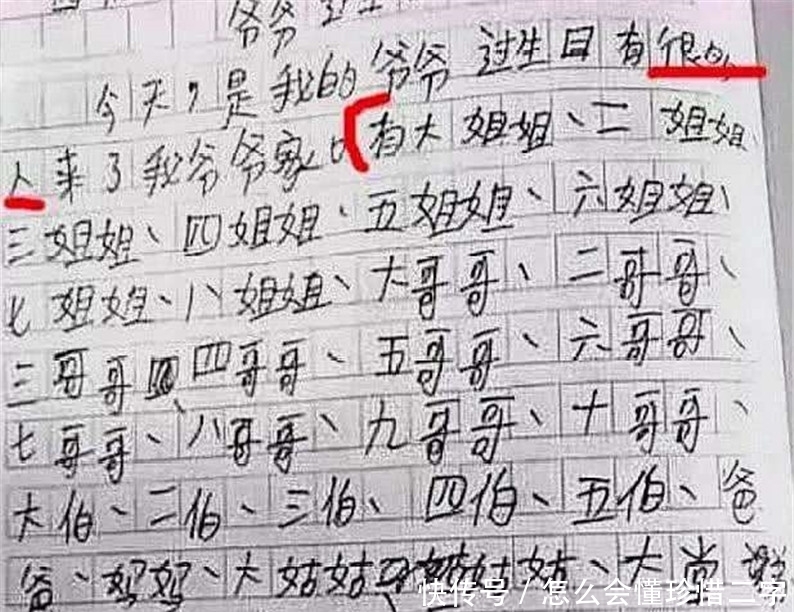 爷爷
今天,是我的爷爷过生日有很的
人来了我爷爷家。有大姐姐、二姐姐、
三姐姐、四姐姐、五姐姐、六姐姐、
七姐姐、八姐姐、大哥哥、二哥哥、
三哥哥、四哥哥、五哥哥、六哥哥、
七哥哥、八哥哥、九哥哥、十哥哥、
大伯、二伯、三伯、四伯、五伯、爸
爸、妈妈、大姑姑、姑姑、大
快传号/怎么会懂珍惜二字